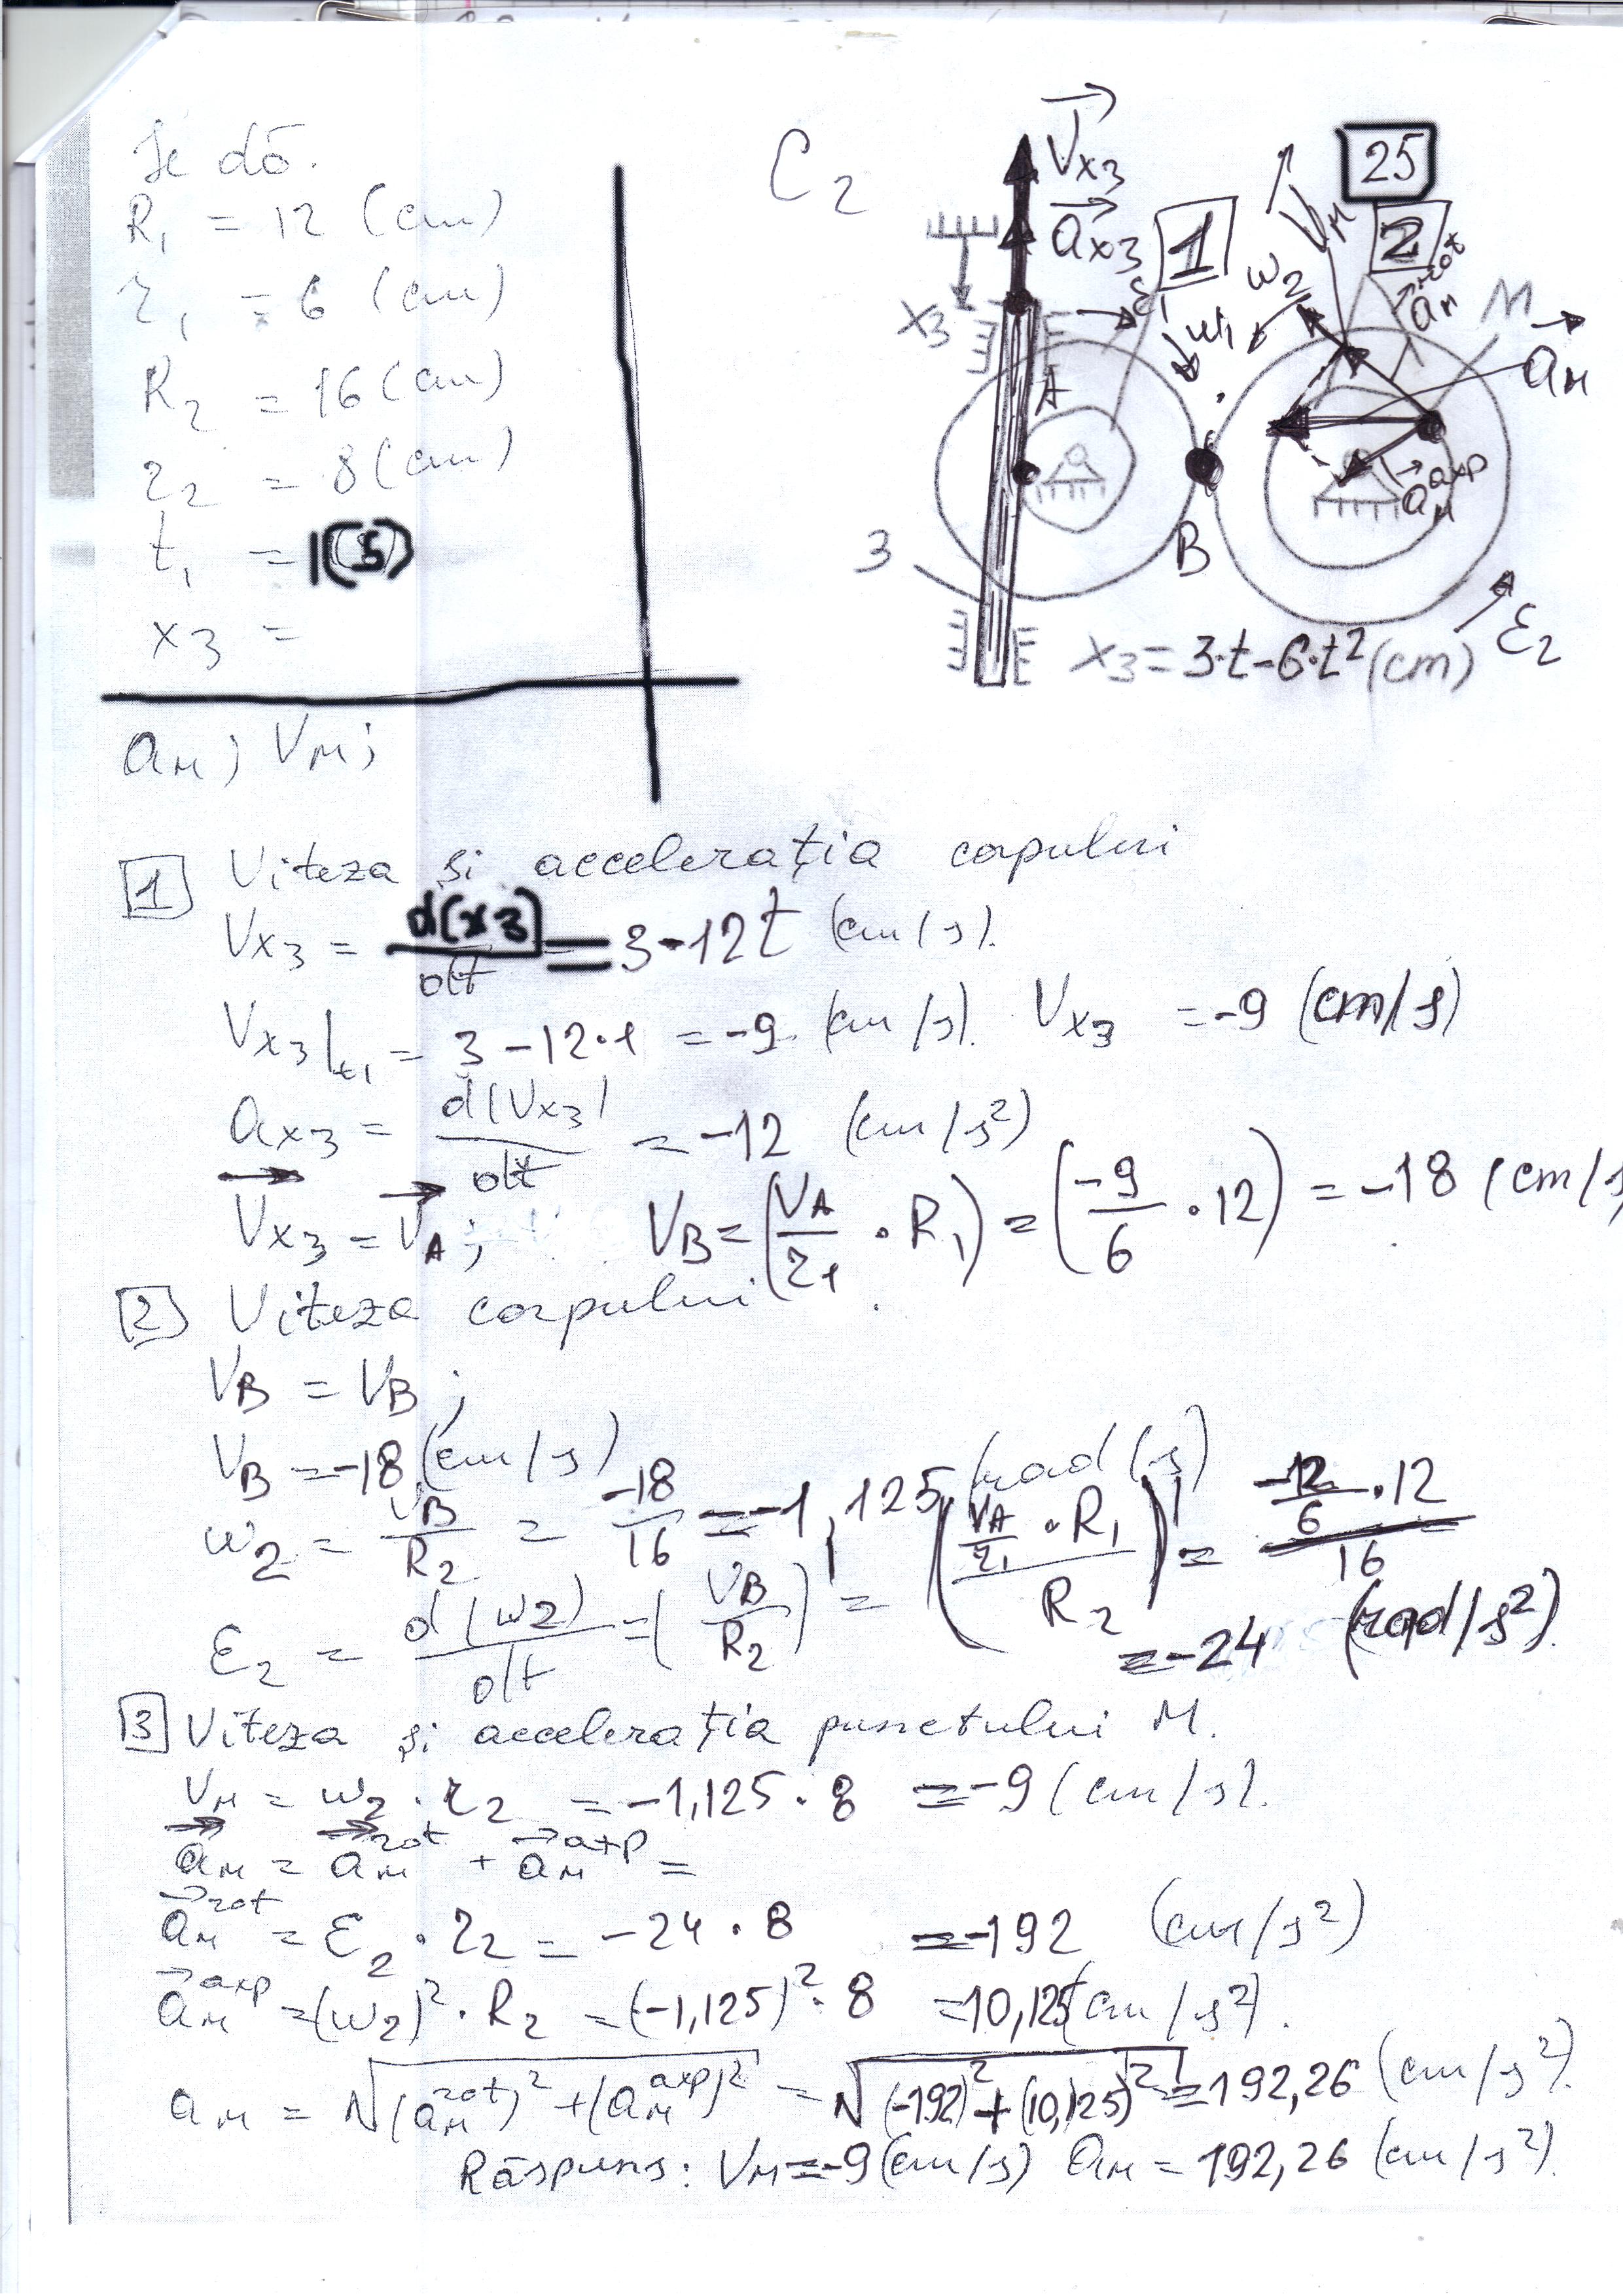 Se dă.
R₁ = 12 (cm)
r₁ = 6 (cm)
R₂ = 16 (cm)
r₂ = 8 (cm)
t₁ = 1(s)
x₃ =
aₘ; Vₘ;
C₂
25
Vx₃
ax₃
1
2
x₃
ε₁
ω₁
ω₂
Vₘ
aₘ^rot
M
aₘ
A
aₘ^axp
B
3
ε₂
x₃ = 3·t-6·t² (cm)
1 Viteza și accelerația corpului
Vx₃ = d(x3)/dt = 3-12t (cm/s).
Vx₃|t₁ = 3-12·1 = -9 (cm/s). Vx₃ = -9 (cm/s)
ax₃ = d(Vx₃)/dt = -12 (cm/s²)
Vx₃ = VA; VB = (VA/r₁ · R₁) = (-9/6 · 12) = -18 (cm/s
2 Viteza corpului
VB = VB;
VB = -18 (cm/s)
ω₂ = VB/R₂ = -18/16 = -1,125 (rad/s)
ε₂ = d(ω₂)/dt = (VB/R₂) = (VA/r₁ · R₁ / R₂)' = -12/6 · 12 / 16
= -24 (rad/s²).
3 Viteza și accelerația punctului M.
Vₘ = ω₂ · r₂ = -1,125 · 8 = -9 (cm/s).
aₘ = aₘ^rot + aₘ^axp =
aₘ^rot = ε₂ · r₂ = -24 · 8 = -192 (cm/s²)
aₘ^axp = (ω₂)² · R₂ = (-1,125)² · 8 = 10,125 (cm/s²).
aₘ = √(aₘ^rot)² + (aₘ^axp)² = √(-192)² + (10,125)² = 192,26 (cm/s²).
Răspuns: Vₘ = -9 (cm/s) aₘ = 192,26 (cm/s²).